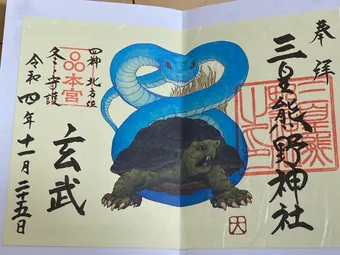 奉拝
三皇熊野神社
四神 北方位
冬を守護
本宮
玄武
令和四年十一月二十五日